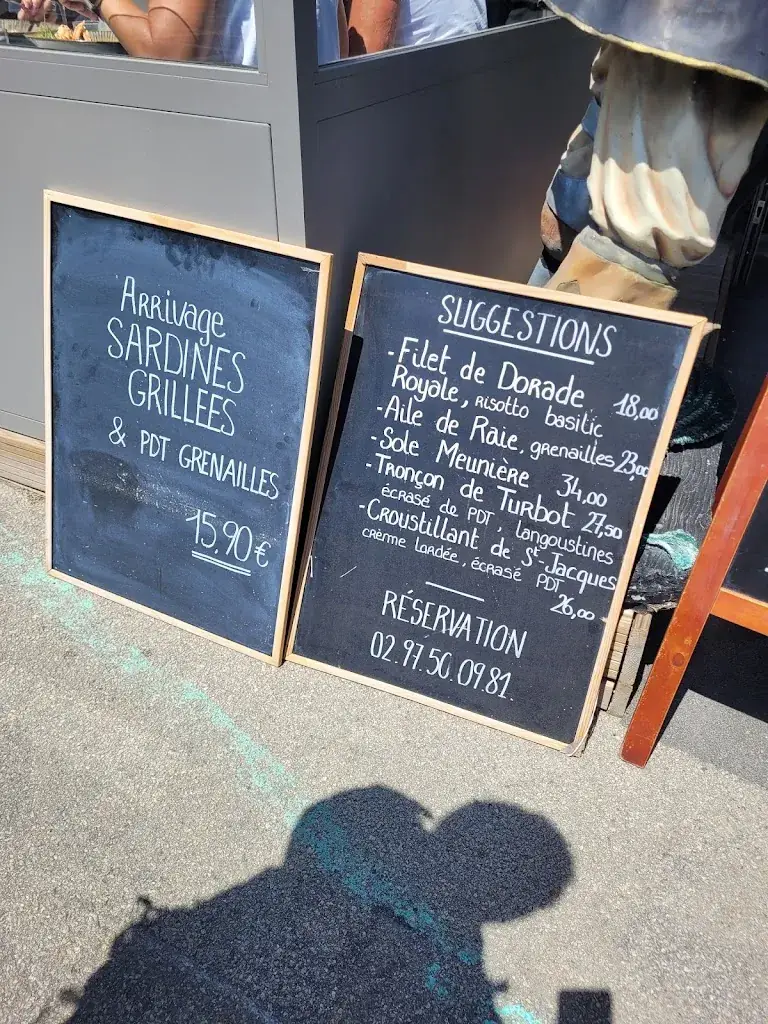 ARRivage
SARDINES
GRILLEES
& PDT GRENAILLES
15,90€
SUGGESTIONS
-Filet de Dorade 18,00
Royale, Risotto basilic
-Aile de Raie, grenailles 23,00
-Sole Meunière 34,00
-Tronçon de Turbot 27,50
écrasé de PDT, langoustines
-Croustillant de St-Jacques
crème lardée, écrasé PDT
26,00
RÉSERVATION
02.97.50.09.81.